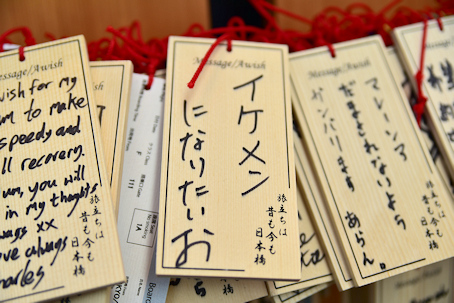 Message/Awish
wish for my
um to make
speedy and
ll recovery.
um, you will
in my thoghts
ways xx
ove always
harles
旅立ちは
昔も今も
日本橋
111
1A
Message/Awish
イケメン
になりたいお
旅立ちは
昔も今も
日本橋
Message/Awish
マレーシア
だまされないよう
ガンバリます
あらん。
旅立ちは
昔も今も
日本橋
Mess